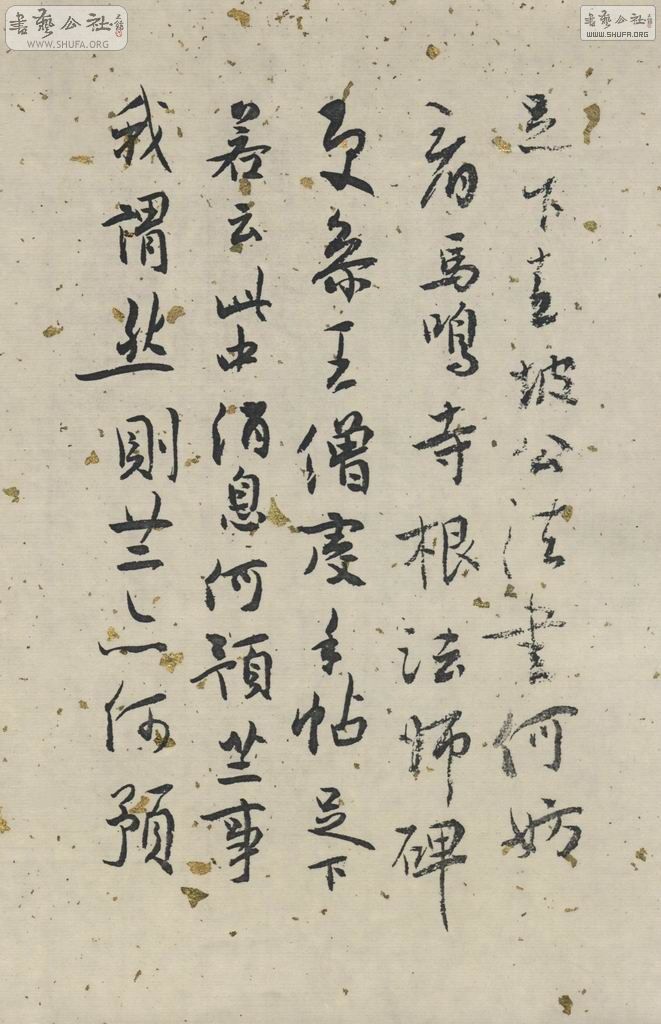 書藝公社
WWW.SHUFA.ORG
書藝公社
WWW.SHUFA.ORG
足下喜坡公法書何妨
看馬鳴寺根法師碑
更參王僧虔手帖足下
若云此中消息何預事
我謂然則亦何預